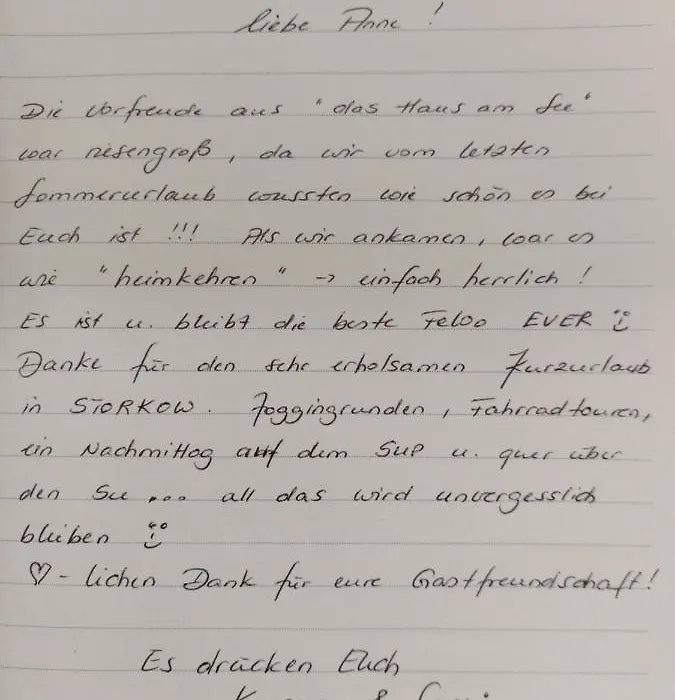 liebe Anne !
Die Vorfreude aus "das Haus am See"
war riesengroß, da wir vom letzten
Sommerurlaub wussten wie schön es bei
Euch ist !!! Als wir ankamen, war es
wie "heimkehren" -> einfach herrlich !
Es ist u. bleibt die beste FeWo EVER
Danke für den sehr erholsamen Kurzurlaub
in STORKOW. Joggingrunden, Fahrradtouren,
ein Nachmittag auf dem SUP u. quer über
den See ... all das wird unvergesslich
bleiben
♡-lichen Dank für eure Gastfreundschaft!
Es drücken Euch
&